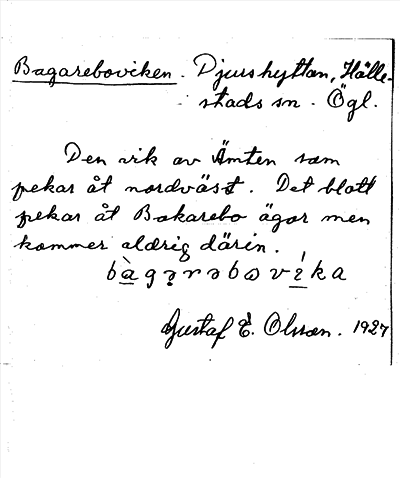 Bagareboviken. Djurshyttan, Hälle-
stads sn. Ögl.
Den vik av Ämten som
pekar åt nordväst. Det blott
pekar åt Bakarebo ägor men
kommer aldrig därin.
bàgərəbovíka
Gustaf E. Olsson. 1927